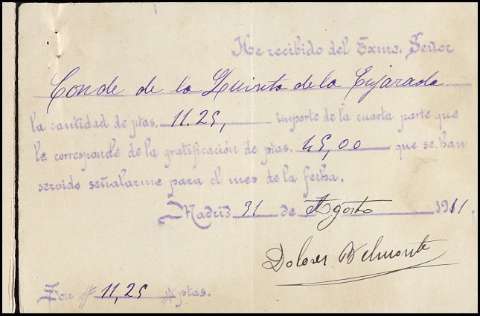 He recibido del Exmo. Señor
Conde de la Quinta de la Enjarada
la cantidad de ptas. 11.25, importe de la cuarta parte que
le corresponde de la gratificación de ptas. 45,00 que se han
servido señalarme para el mes de la fecha.
Madrid 31 de Agosto 1911.
Dolores Belmonte
Son # 11,25 # ptas.